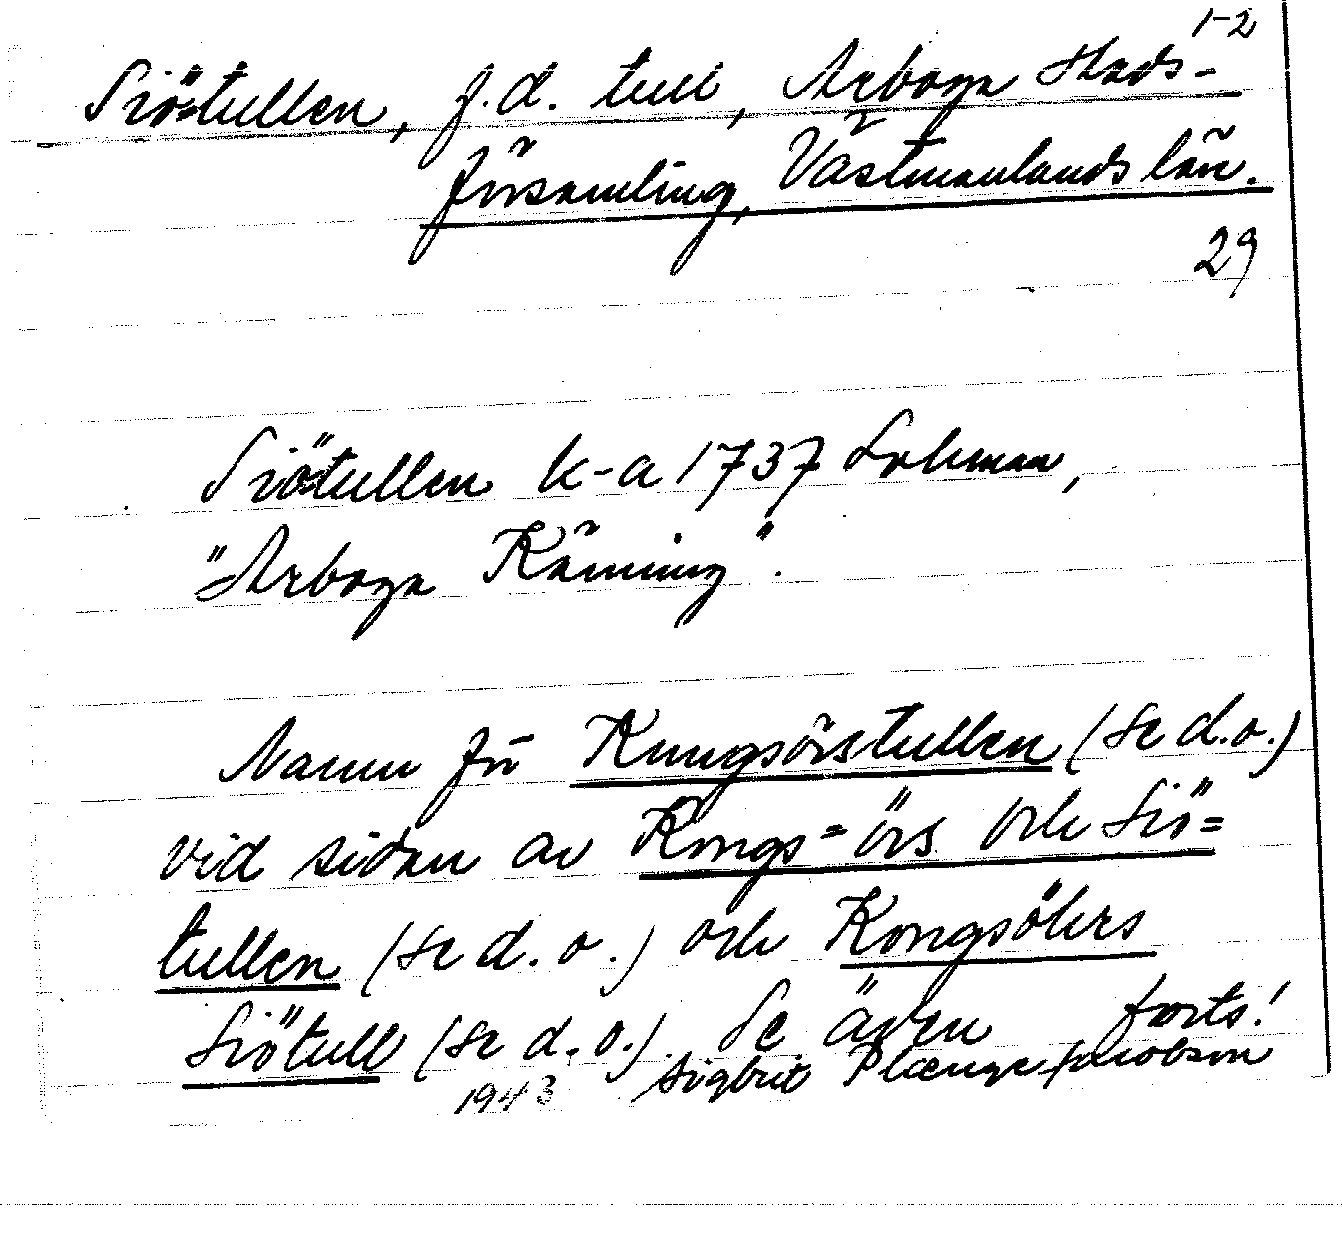 1-2
Siötullen, f.d. tull, Arboga stads-
församling, Västmanlands län.
29
Siötullen k-a 1737 Lohman,
"Arboga Känning".
Namn för Kungsörstullen (se d.o.)
vid sidan av Kongs=örs och Siö=
tullen (se d.o.) och Kongsöhrs
Siötull (se d.o.). Se även forts!
1943 Sigbrit Plænge Jacobson